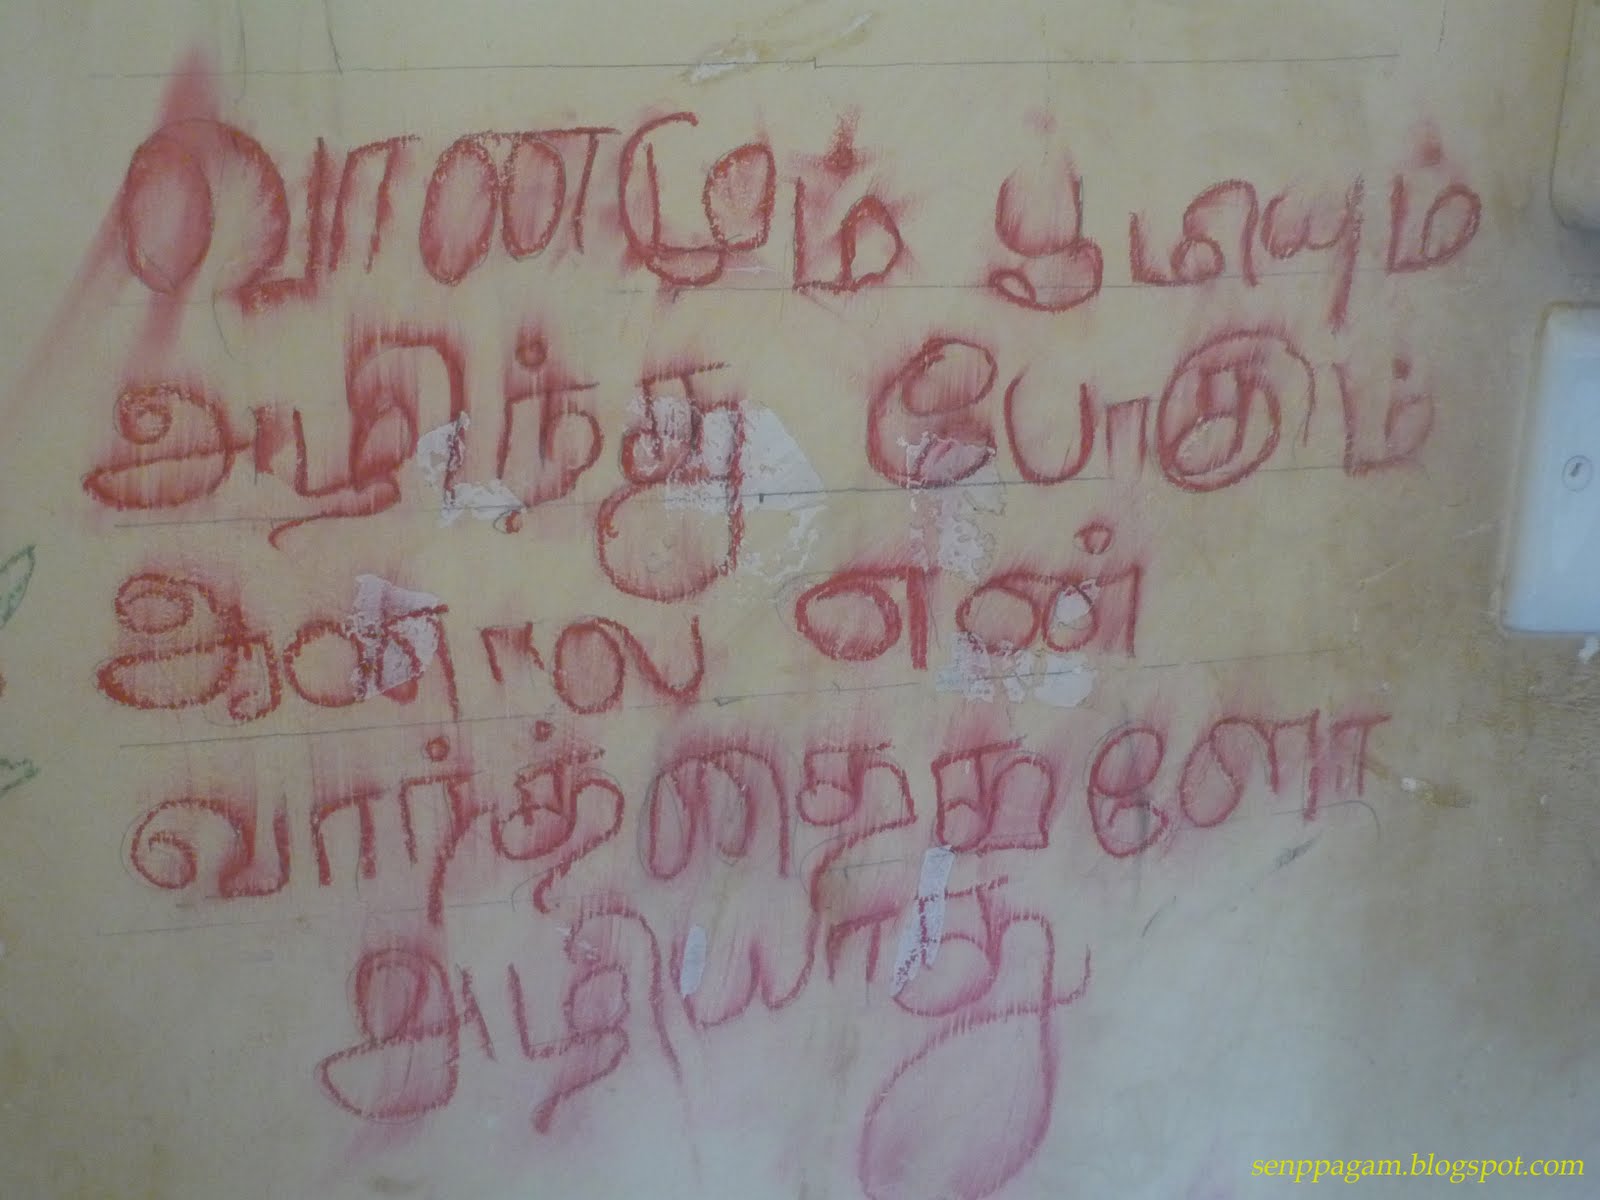 வானமும் பூமியும்
அழிந்து போகும்
ஆனால் என்
வார்த்தைகளோ
அழியாது
senppagam.blogspot.com